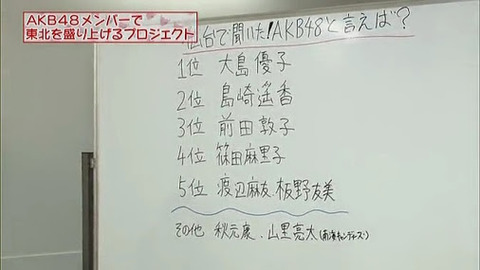 AKB48メンバーで
東北を盛り上げるプロジェクト
仙台で聞いた!AKB48と言えば?
1位 大島優子
2位 島崎遥香
3位 前田敦子
4位 篠田麻里子
5位 渡辺麻友、板野友美
その他 秋元康、山里亮太(南海キャンディーズ)